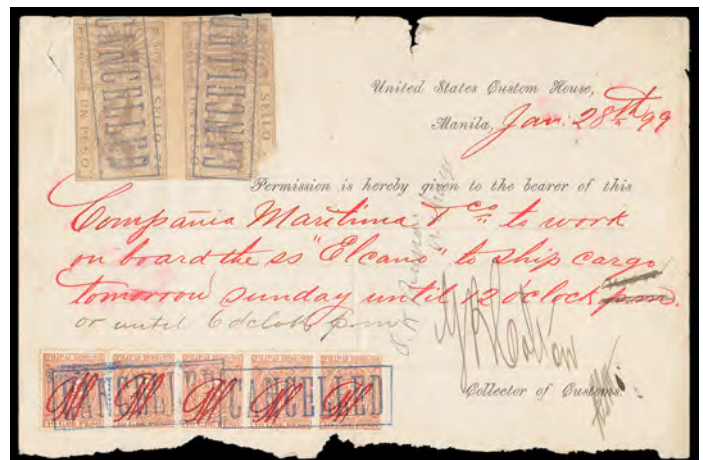 CANCELLED
CANCELLED
SELLO
UN PESO
United States Custom House,
Manila, Jan. 28th 99
Permission is hereby given to the bearer of this
Compañia Maritima to work
on board the ss "Elcano" to ship cargo
tomorrow sunday until 12 o'clock p.m.
or until 6 o'clock p.m.
CANCELLED
CANCELLED
Collector of Customs.